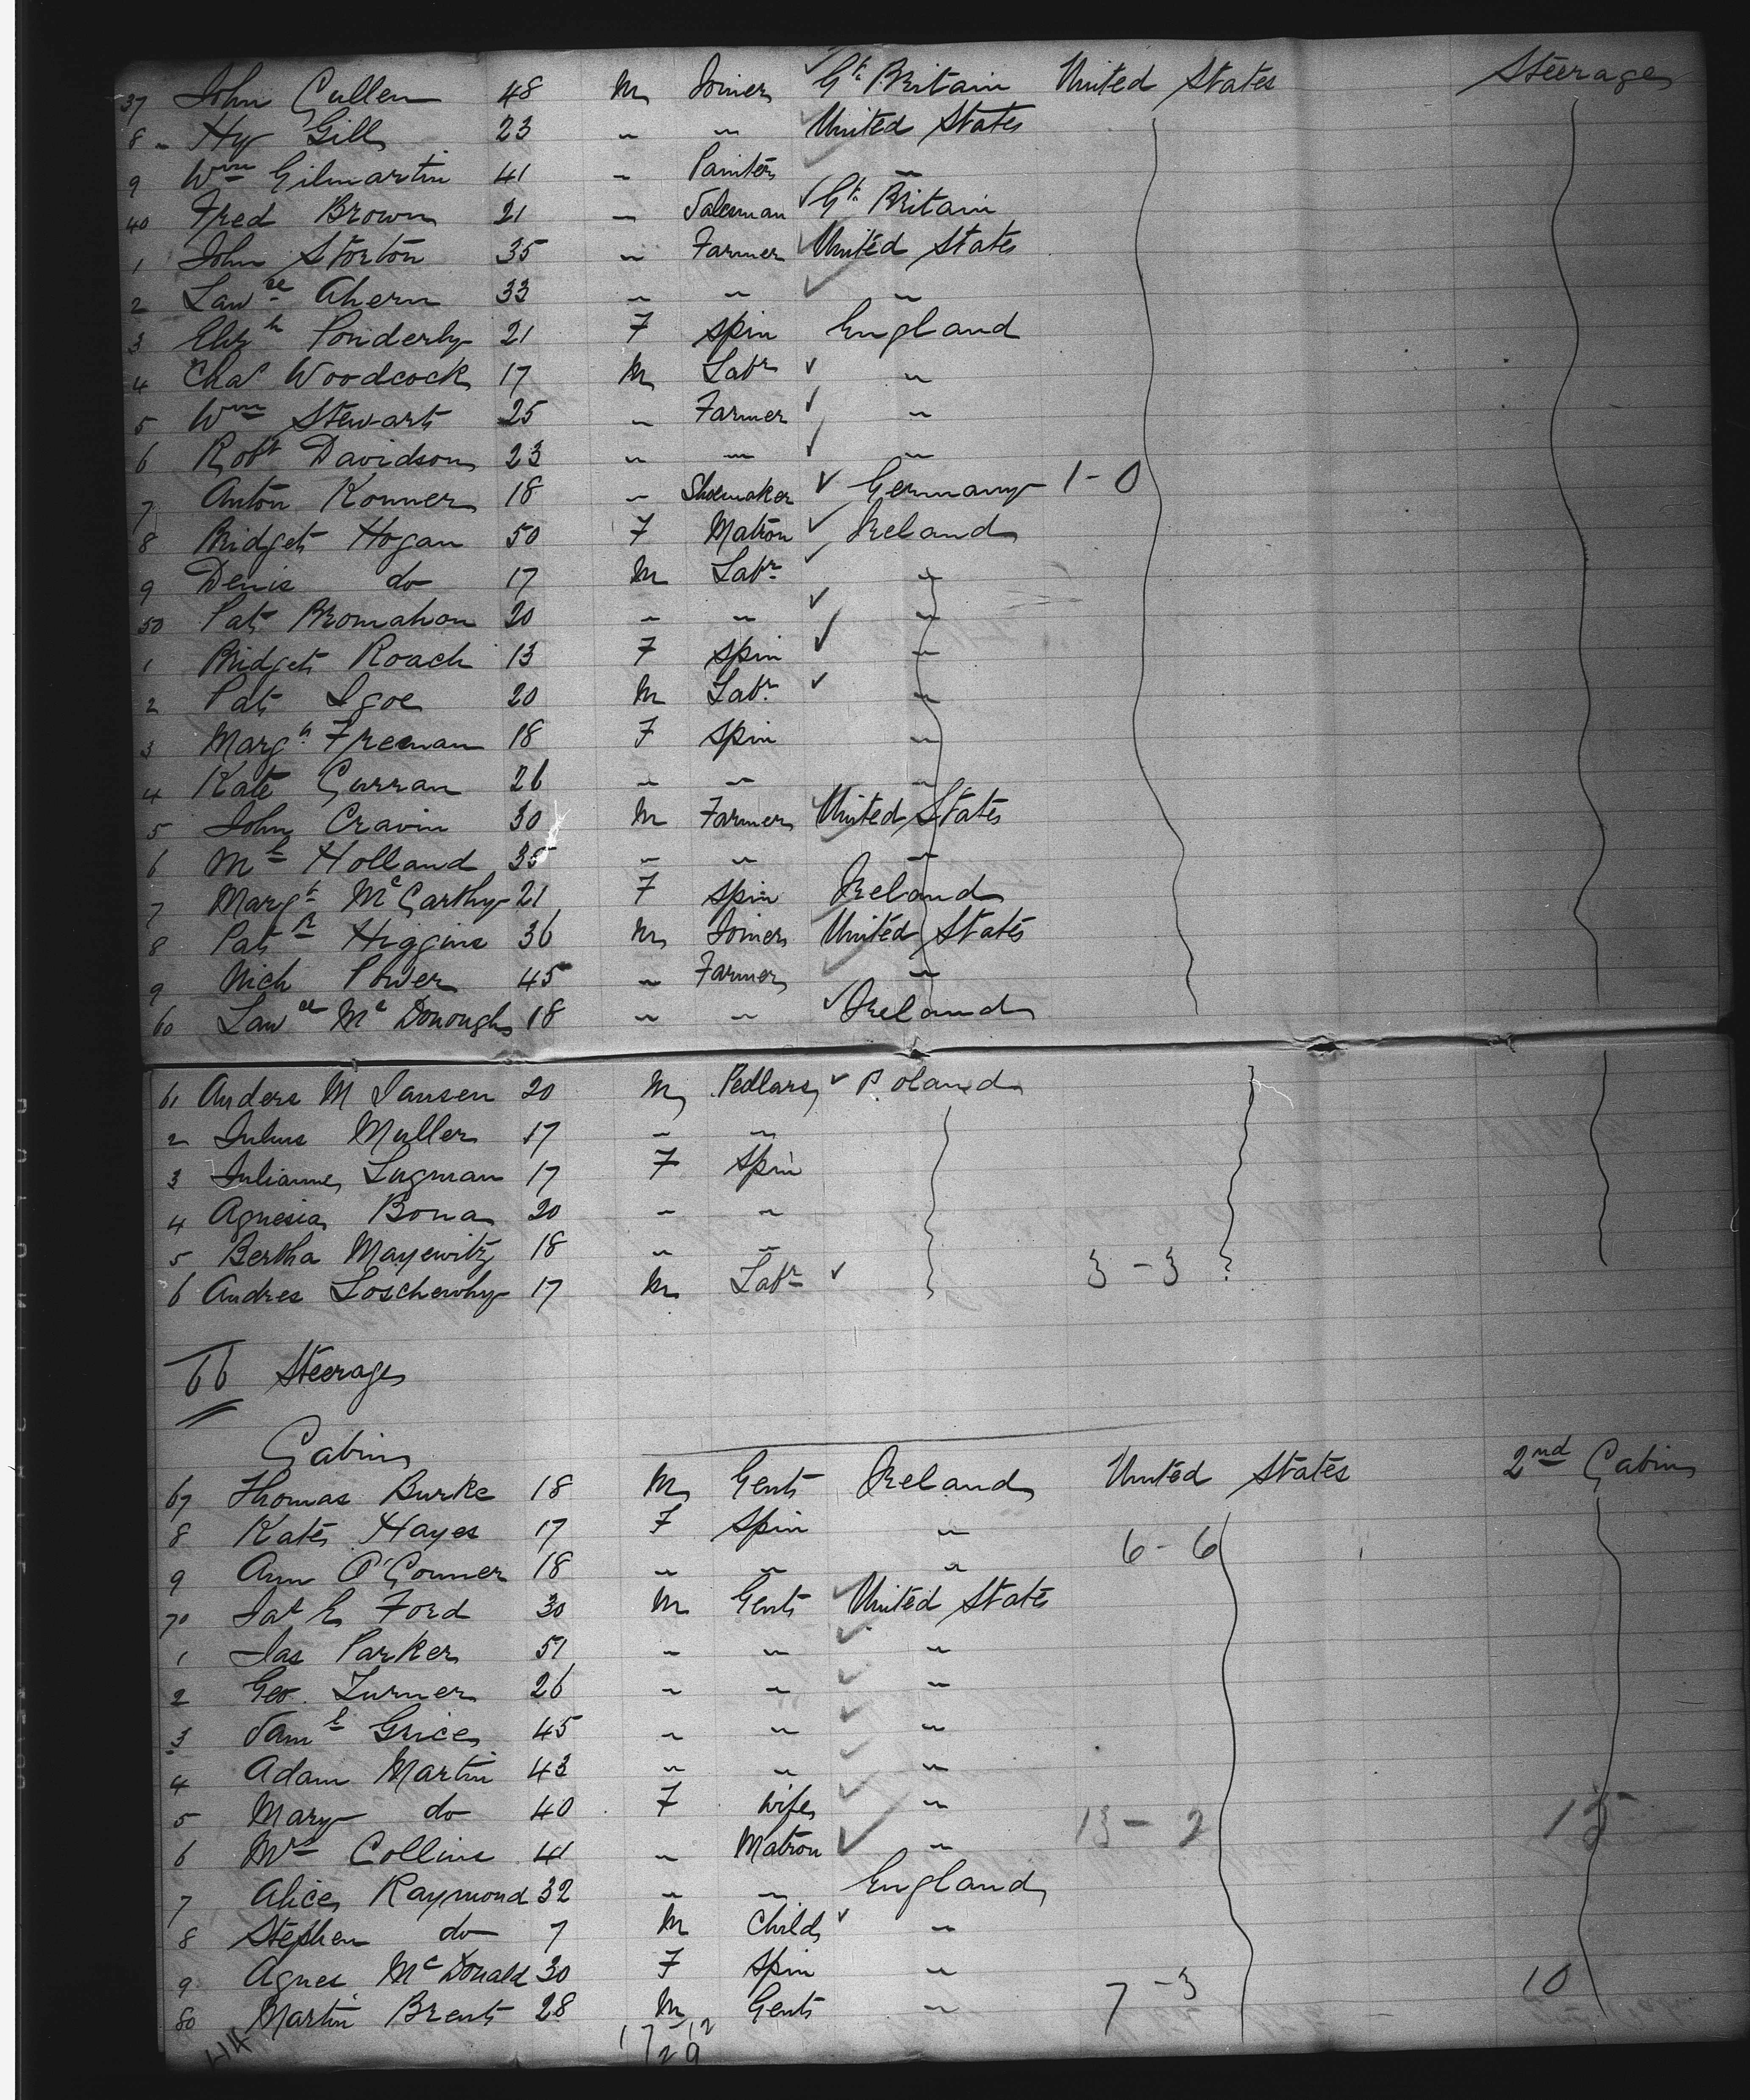 37 John Cullen 48 M Joiner Gt. Britain United States Steerage
8 Hy Gill 23 " " United States
9 Wm Gilmartin 41 " Painter "
40 Fred Brown 21 " Salesman Gt. Britain
1 John Storton 35 " Farmer United States
2 Lawce Ahern 33 " " "
3 Elizh Ponderby 21 F Spin England
4 Chas Woodcock 17 M Labr "
5 Wm Stewart 25 " Farmer "
6 Robt Davidson 23 " " "
7 Anton Konner 18 " Shoemaker Germany 1-0
8 Bridget Hogan 50 F Matron Ireland
9 Denis do 17 M Labr "
50 Pat Bromahon 20 " " "
1 Bridget Roach 13 F Spin "
2 Pat Igoe 20 M Labr "
3 Margt Freeman 18 F Spin "
4 Kate Curran 26 " " "
5 John Cravin 30 M Farmer United States
6 Ml Holland 35 " " "
7 Margt McCarthy 21 F Spin Ireland
8 Patk Higgins 36 M Joiner United States
9 Nich Power 45 " Farmer "
60 Lawce McDonough 18 " " Ireland
61 Anders M Jansen 20 M Pedlars Poland
2 Julius Muller 17 " "
3 Julianne Lugman 17 F Spin
4 Agnesia Bona 20 " "
5 Bertha Mayewitz 18 " " 3-3
6 Andres Loschewhy 17 M Labr
66 Steerage
Cabin
67 Thomas Burke 18 M Gent Ireland United States 2nd Cabin
8 Kate Hayes 17 F Spin " 6-6
9 Ann O'Conner 18 " " "
70 Jas E Ford 30 M Gent United States
1 Jas Parker 51 " " "
2 Geo. Turner 26 " " "
3 Saml Grice 45 " " "
4 Adam Martin 43 " " "
5 Mary do 40 F Wife " 13-2 13
6 Mrs Collins 41 " Matron "
7 Alice Raymond 32 " " England
8 Stephen do 7 M Child "
9 Agnes McDonald 30 F Spin " 7-3 10
80 Martin Brent 28 M Gent "
44 17 12
29